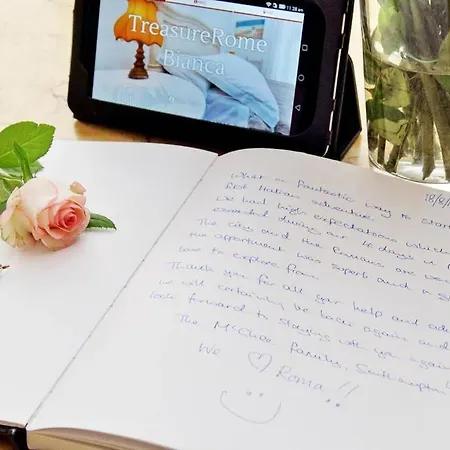 11:28 am
TreasureRome
Bianca
18/8/
What a fantastic way to start
first Italian adventure.
We had high expectations which
exceeded during our 4 days in
The city and the are
the appartment was superb and a
base to explore from.
Thank you for all your help and
we will certainly be back again and
look forward to staying with you again
The family, Southampton
We ♡ Roma!!